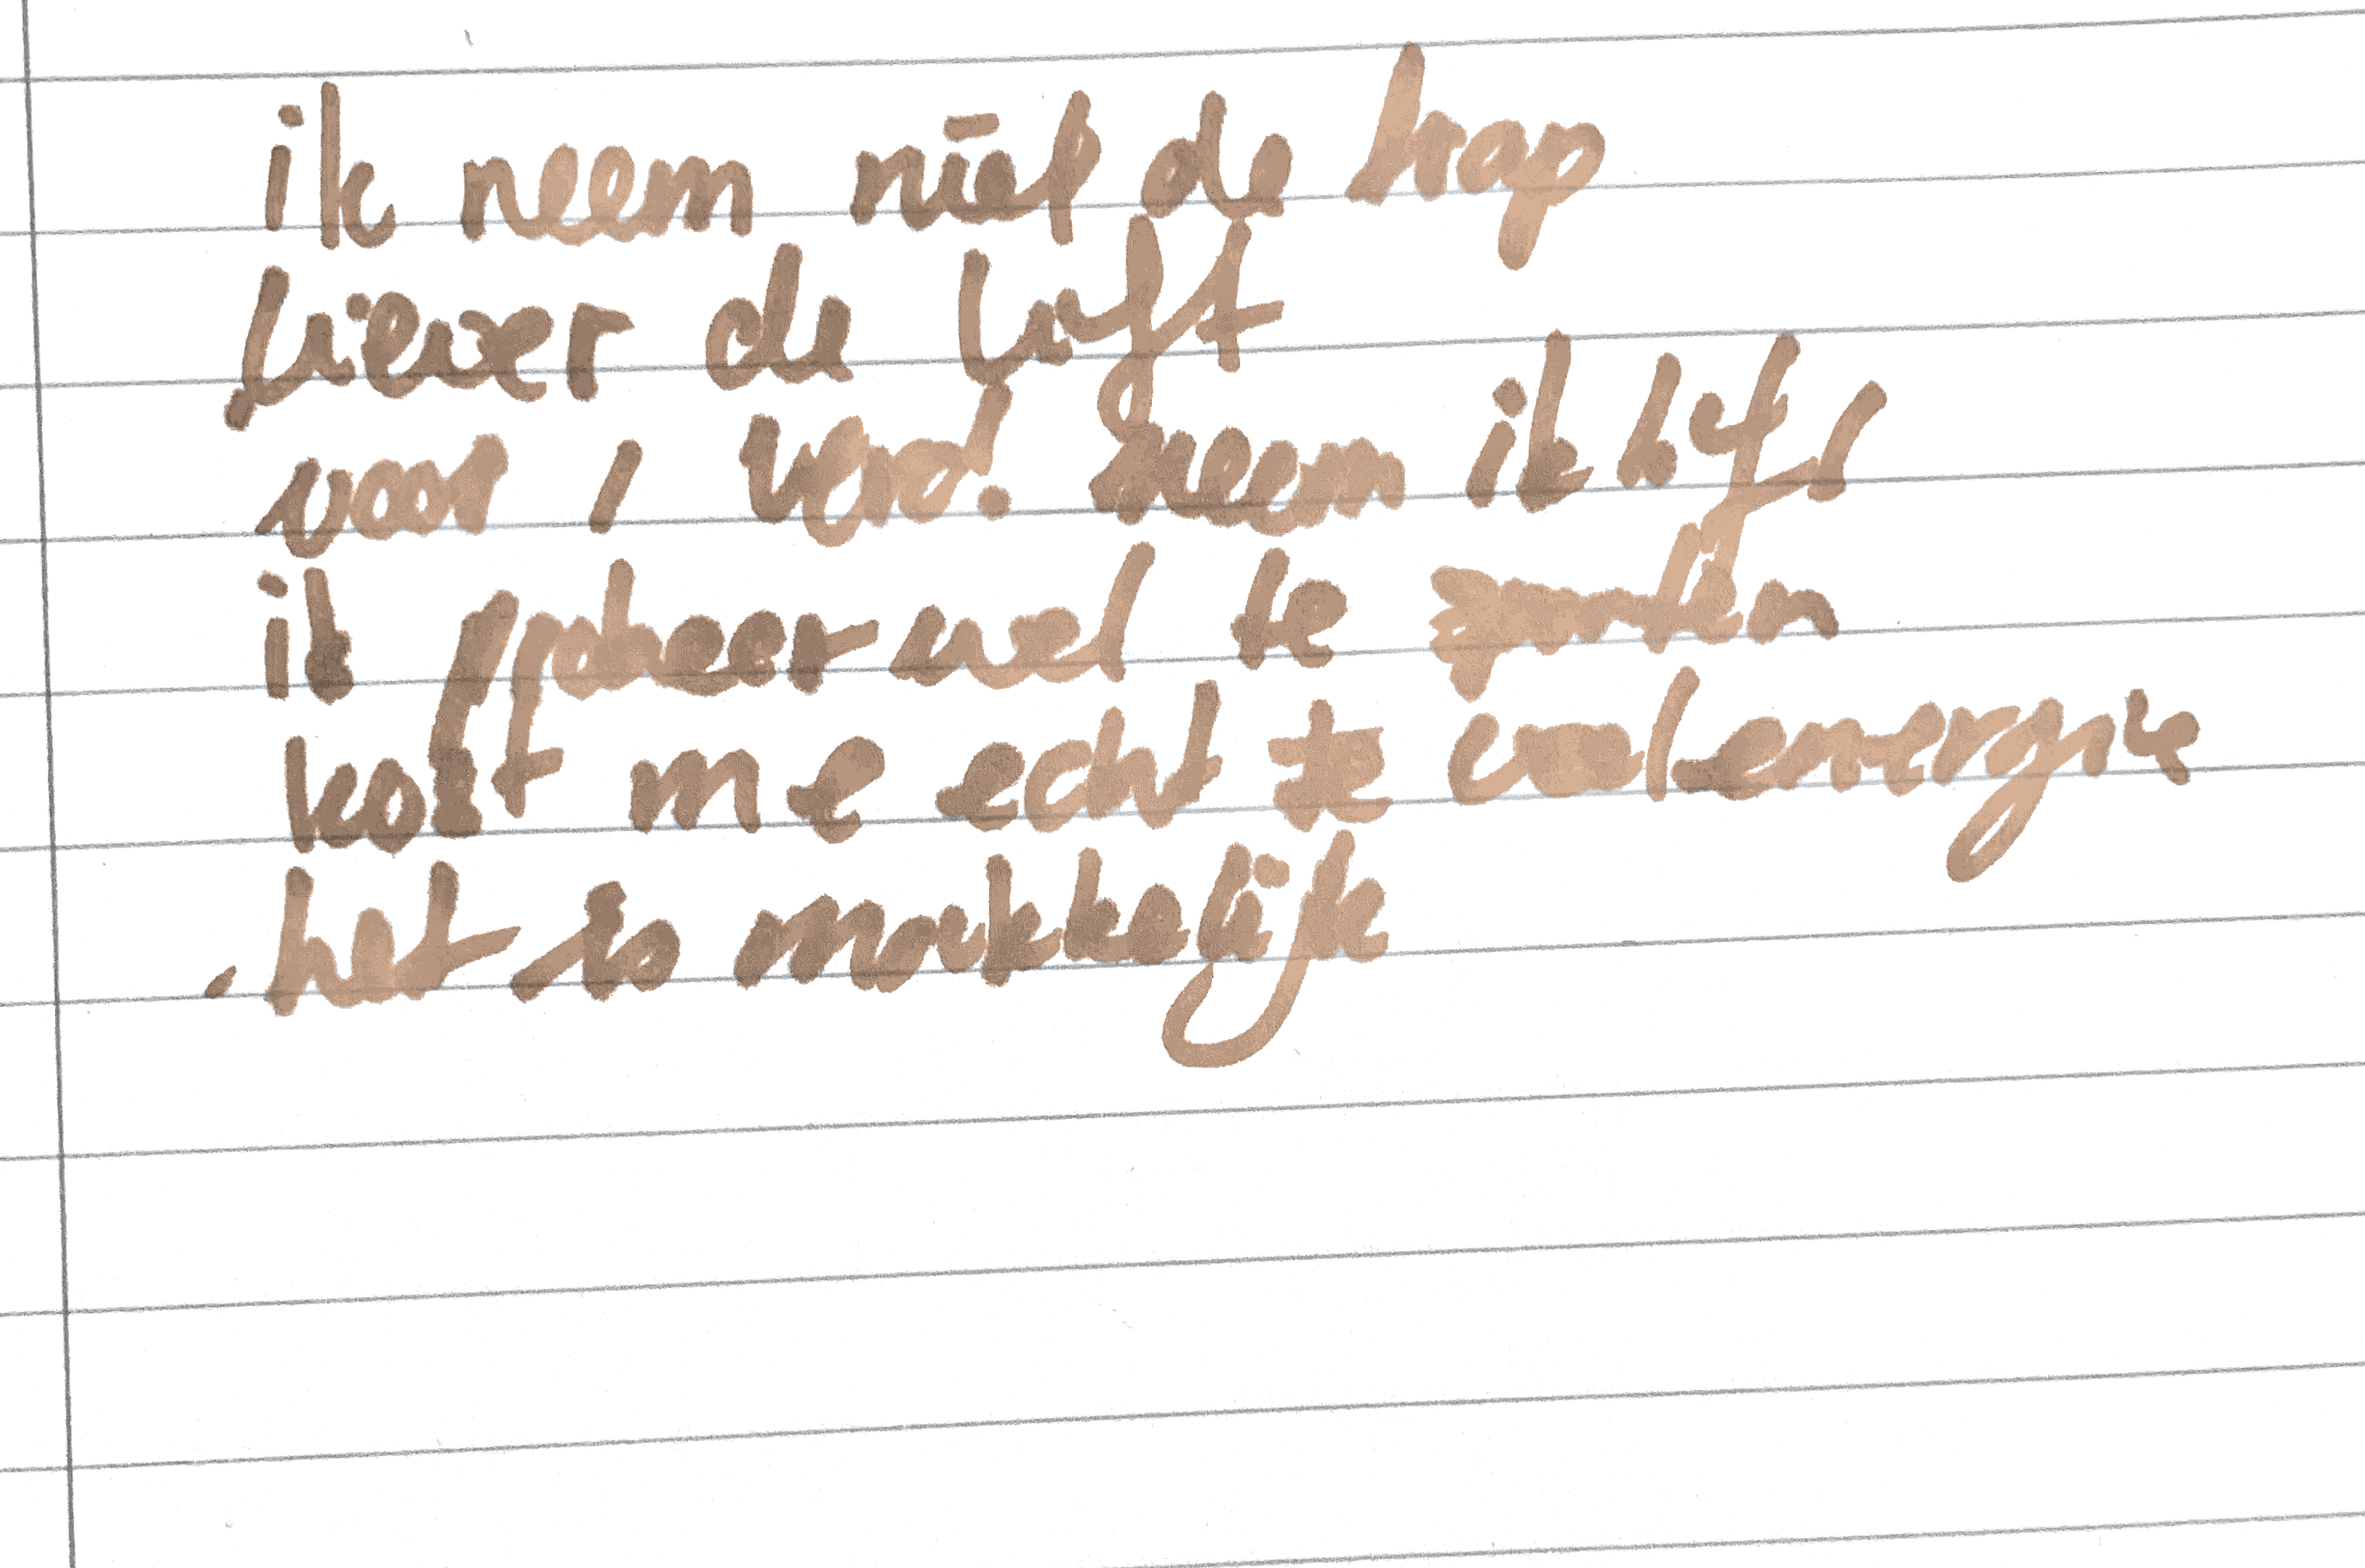 ik neem niet de trap
liever de lift
voor 1 verd. neem ik lift
ik probeer wel te
kost me echt te veel energie
het is makkelijk